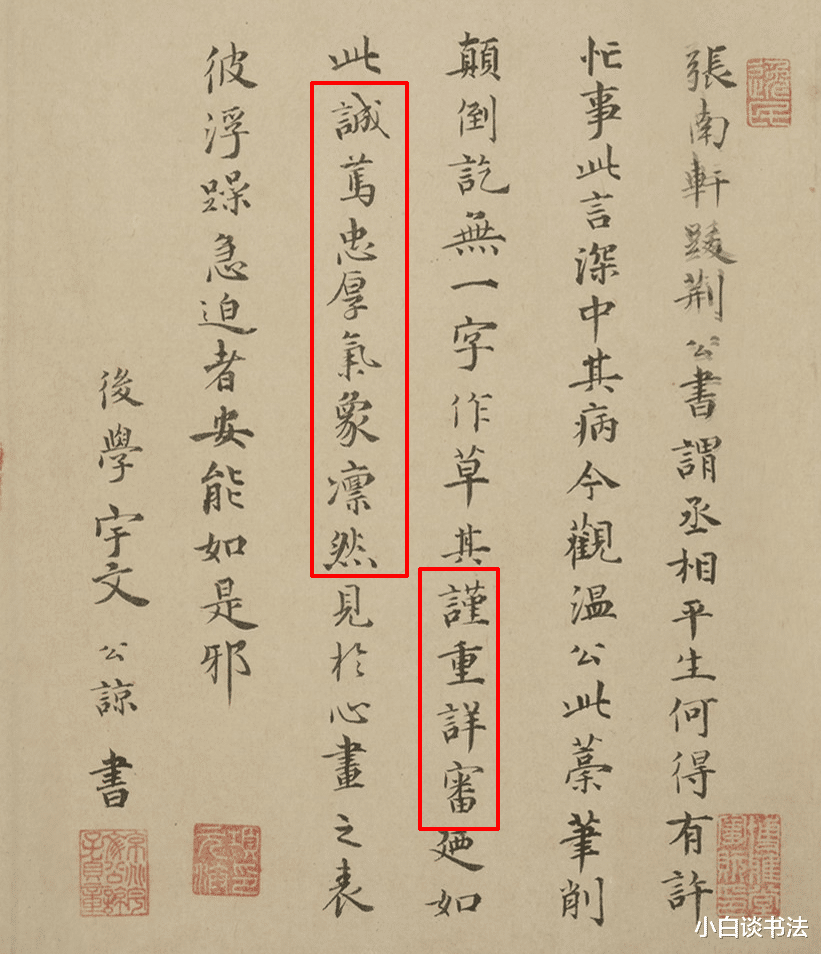 張南軒跋荆公書謂丞相平生何得有許
忙事此言深中其病今觀溫公此藁筆削
顛倒訖無一字作草其謹重詳審廼如
此誠篤忠厚氣象凛然見於心畫之表
彼浮躁急迫者安能如是邪
後學宇文公諒書
小白谈书法